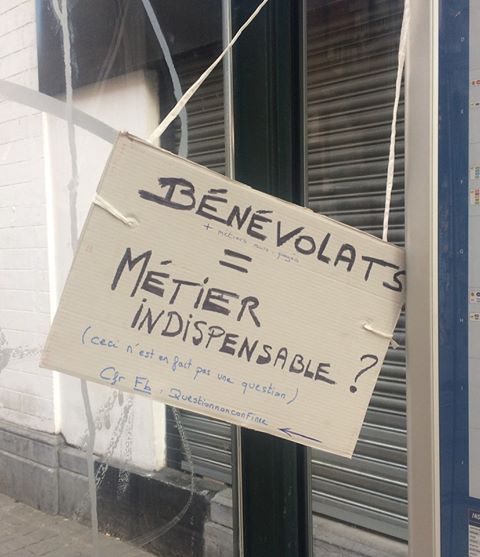 BÉNÉVOLATS
+ métiers sous payés
=
MÉTIER
INDISPENSABLE ?
(ceci n'est en fait pas une question)
Cfr Fb. Questionnonconfinée